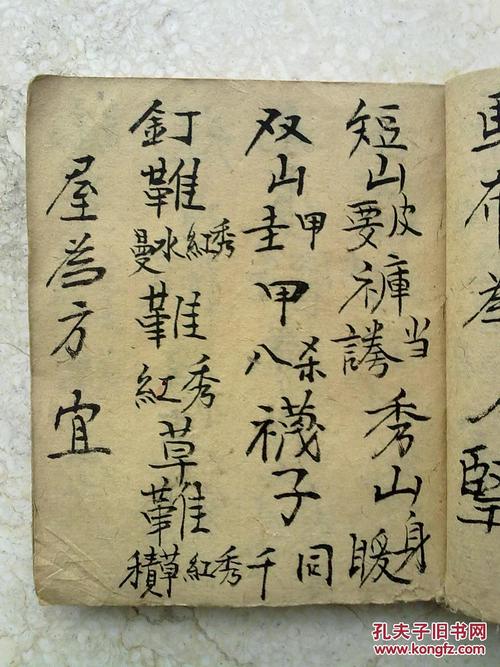 短山皮要褲当謗秀山身暖
双山甲圭甲杀八襪子同千
釘難秀紅水曼難秀紅草難秀紅草積
屋為方宜
孔夫子旧书网
www.kongfz.com